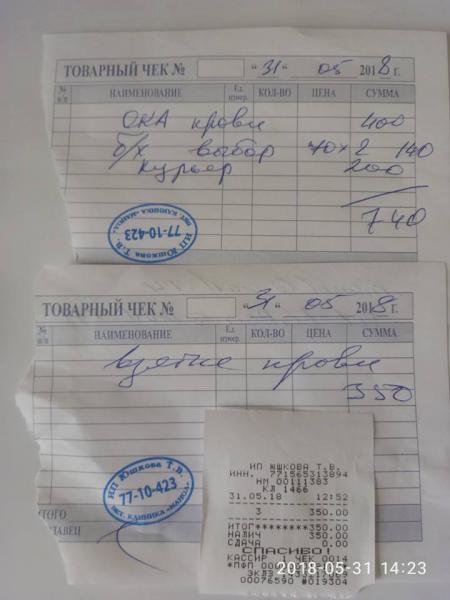 ТОВАРНЫЙ ЧЕК № "31" 05 2018 г.
№ п/п НАИМЕНОВАНИЕ Ед. измер. КОЛ-ВО ЦЕНА СУММА
ОКА крови 400
б/х выбор 70 х 2 140
курьер 200
740
ИП Юшкова Т.В.
77-10-423
ВЕТ. КЛИНИКА
ТОВАРНЫЙ ЧЕК № "31" 05 2018 г.
№ п/п НАИМЕНОВАНИЕ Ед. измер. КОЛ-ВО ЦЕНА СУММА
взятие крови
350
ИП Юшкова Т.В.
77-10-423
ВЕТ. КЛИНИКА
ИТОГО
ИП ЮШКОВА Т.В.
ИНН. 771565313894
НМ 00111383
КЛ 1466
31.05.18 12:52
3 350.00
ИТОГ********350.00
НАЛИЧ 350.00
СДАЧА 0.00
СПАСИБО!
КАССИР 1 ЧЕК 0014
*ПФП
ЭКЛЗ
00076590 #019304
2018-05-31 14:23